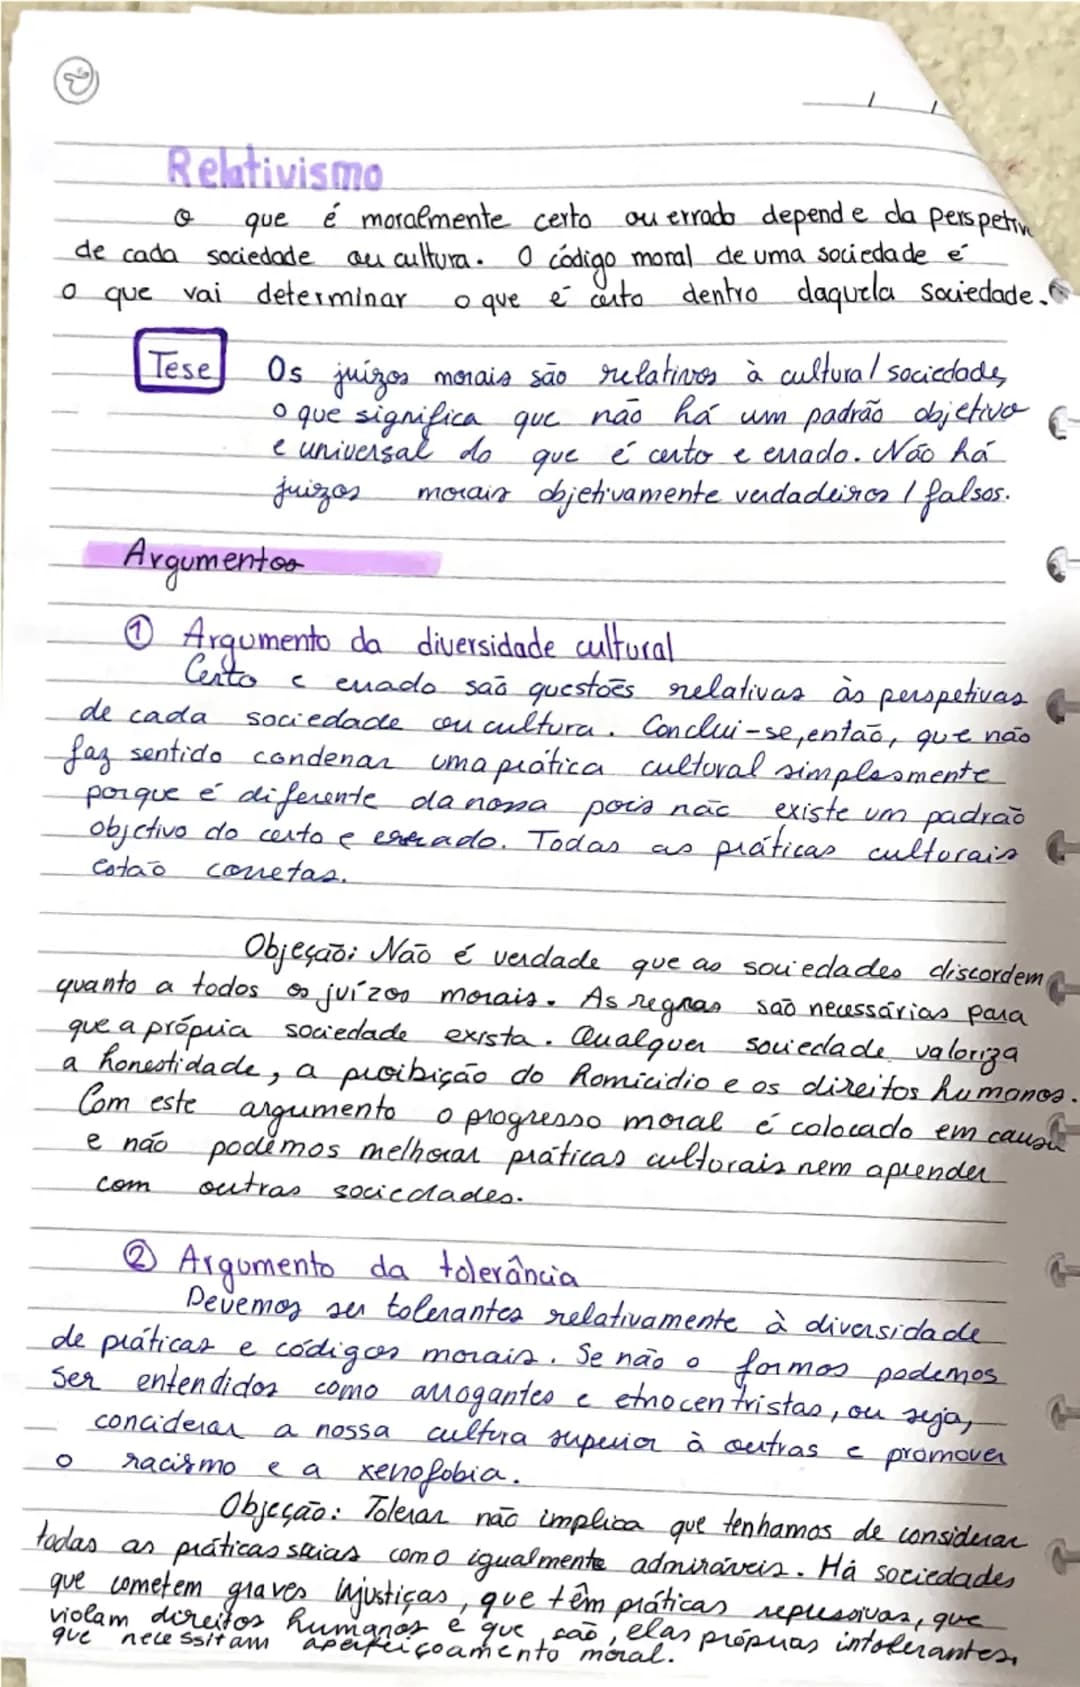 Relativismo
O que é moralmente certo ou errado depende da perspetiv
de cada sociedade ou cultura. O código moral de uma sociedade é
o que vai determinar o que é certo dentro daquela sociedade.
Tese
Os juízos morais são relativos à cultura/sociedade,
o que significa que não há um padrão objetivo
e universal do que é certo e errado. Não há
juizos morais objetivamente verdadeiros / falsos.
Argumentos
① Argumento da diversidade cultural
Certo e errado são questões relativas às perspetivas
de cada sociedade ou cultura. Conclui-se, então, que não
faz sentido condenar uma prática cultural simplesmente
porque é diferente da nossa pois não existe um padrão
objetivo do certo e errado. Todas as práticas culturais
estão corretas.
Objeção: Não é verdade que as sociedades discordem
quanto a todos os juízos morais. As regras são necessárias para
que a própria sociedade exista. Qualquer sociedade valoriza
a honestidade, a proibição do homicidio e os direitos humanos.
Com este argumento o progresso moral é colocado em causa
e não podemos melhorar práticas culturais nem aprender
com outras sociedades.
② Argumento da tolerância
Devemos ser tolerantes relativamente à diversidade
de práticas e códigos morais. Se não o formos podemos
ser entendidos como arrogantes e etnocentristas, ou seja,
conciderar a nossa cultura superior à outras e promover
o racismo e a xenofobia.
Objeção: Tolerar não implica que tenhamos de considerar
todas as práticas como igualmente admiráveis. Há sociedades
que cometem graves injustiças, que têm práticas repressivas, que
violam direitos humanos e que são, elas próprias intolerantes,
que necessitam aperfeiçoamento moral.